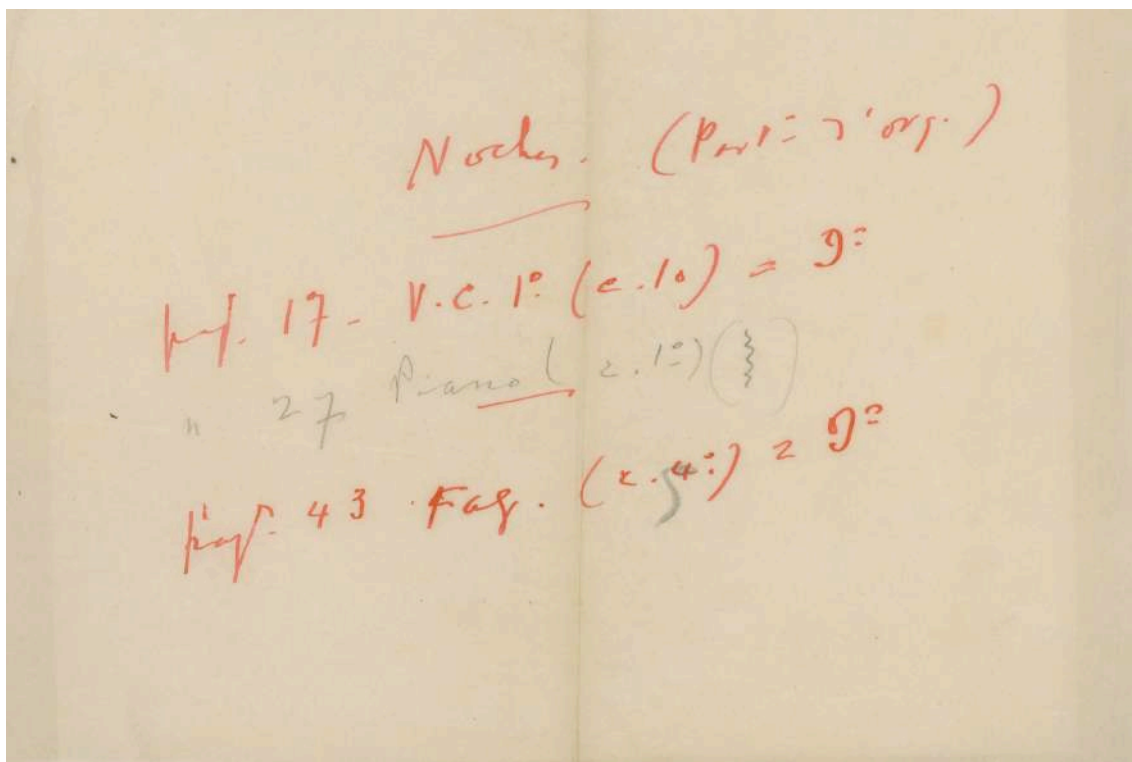 Noches. (Part: d'orq.)
pág. 17 - V.C. 1º (c. 10) = 9:
" 27 Piano (c. 1º) ( )
pág. 43. Fag. (c. 4º) = 9: